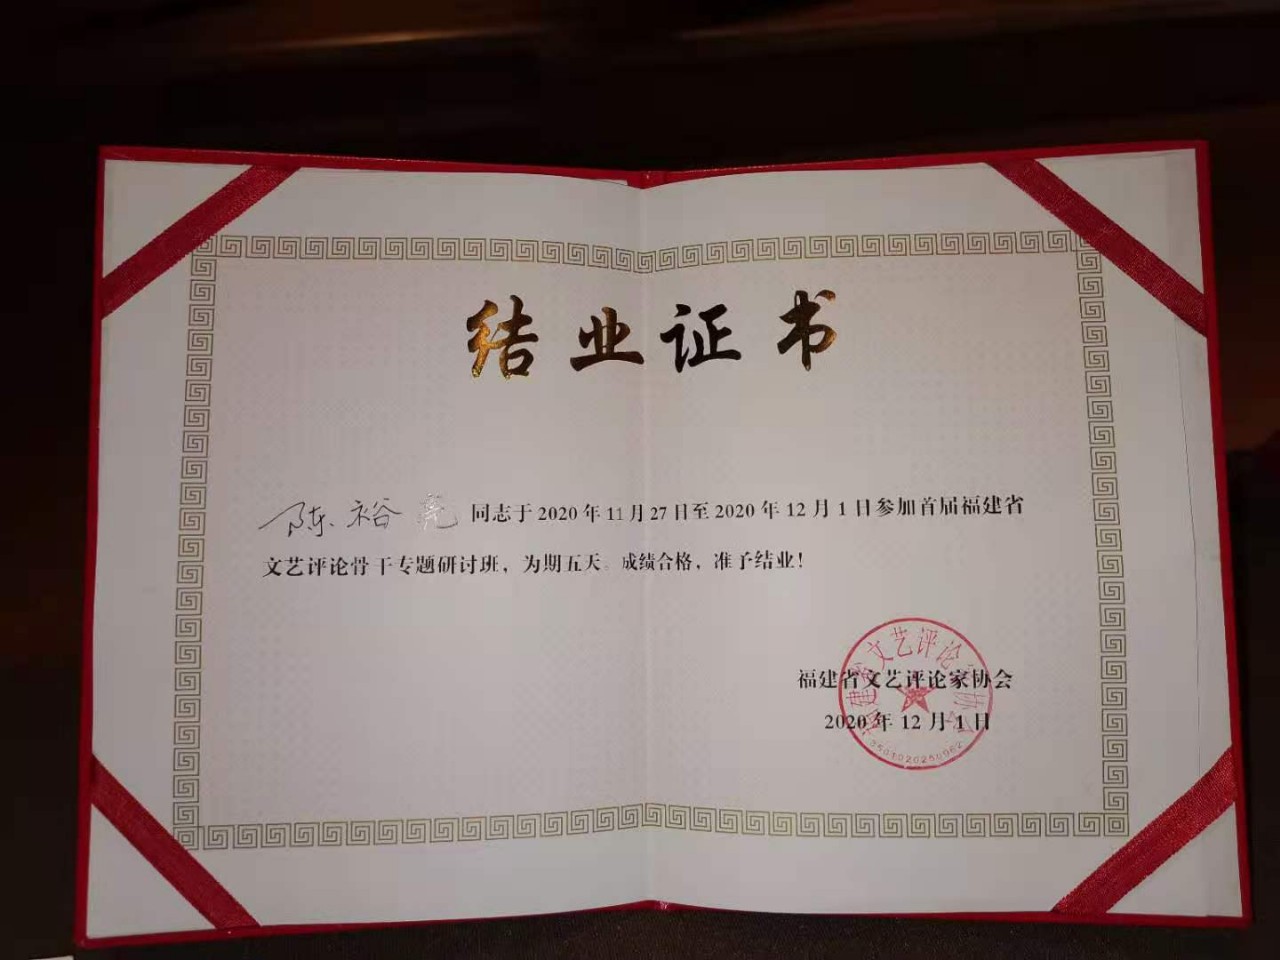 结业证书
陈裕亮 同志于 2020 年 11 月 27 日至 2020 年 12 月 1 日参加首届福建省
文艺评论骨干专题研讨班，为期五天。成绩合格，准予结业！
福建省文艺评论家协会
2020 年 12 月 1 日
福建省文艺评论家协会